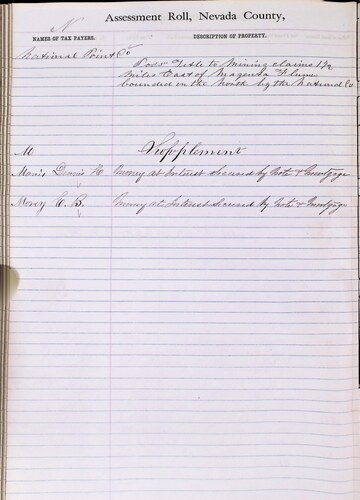 N
Assessment Roll, Nevada County,
NAMES OF TAX PAYERS. DESCRIPTION OF PROPERTY.
National Point Co Poss Title to Mining claims 1 1/2
miles East of Magenta Flume
bounded on the North by the National Co
M Supplement
Dennis H Money at Interest secured by Note & Mortgage
Morey E. B. Money at Interest secured by Note & Mortgage